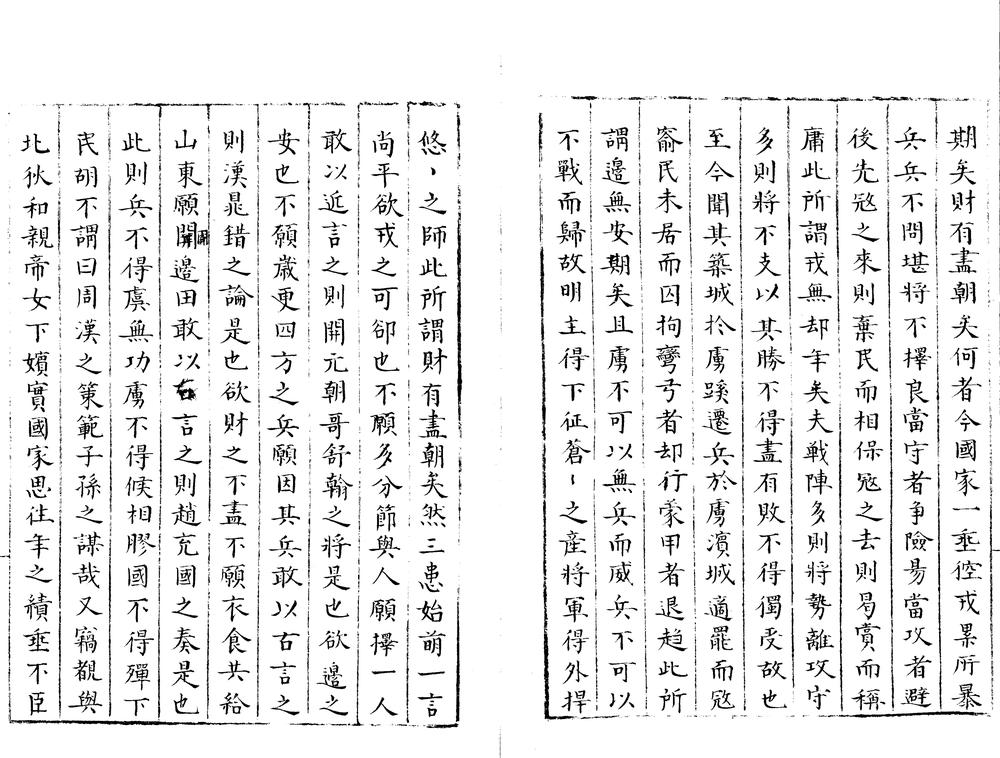 期矣財有盡朝矣何者今國家一垂徑戎累所暴
兵兵不問堪將不擇良當守者争險昜當攻者避
後先宼之來則棄民而相保宼之去則曷賞而稱
庸此所謂戎無却年矣夫戰陣多則將勢離攻守
多則將不支以其勝不得盡有敗不得獨受故也
至今聞其築城扵虜蹊遷兵於虜濱城適罷而宼
龠民未居而囚拘彎弓者却行蒙甲者退趋此所
謂邊無安期矣且虜不可以無兵而威兵不可以
不戰而歸故明主得下征蒼丶之産將軍得外捍
悠丶之師此所謂財有盡朝矣然三患始萌一言
尚平欲戎之可卻也不願多分節與人願擇一人
敢以近言之則開元朝哥舒翰之將是也欲邊之
安也不願歳更四方之兵願因其兵敢以古言之
則漢晁錯之論是也欲財之不盡不願衣食共給
山東願開邊田敢以古言之則趙充國之奏是也
此則兵不得虞無功虜不得候相膠國不得殫下
民胡不謂曰周漢之策範子孫之謀哉又竊覩與
北狄和親帝女下嬪實國家思往年之績垂不臣